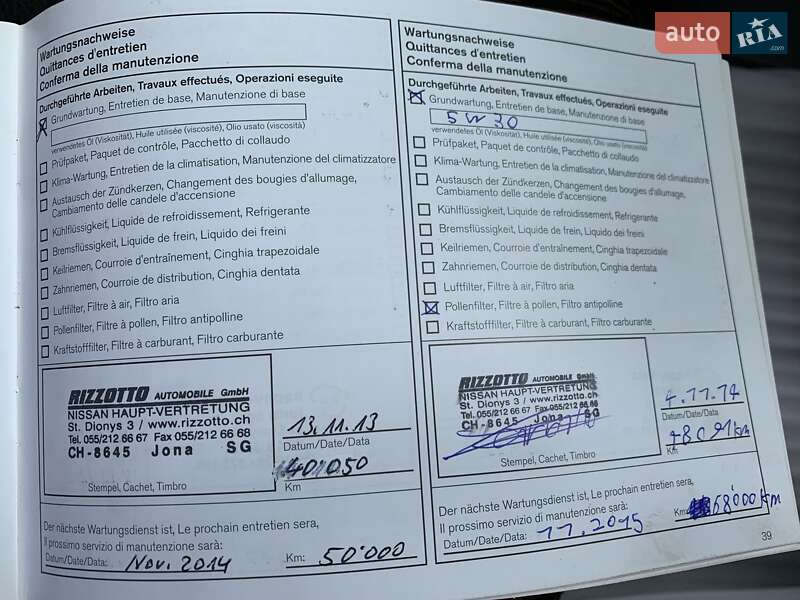 auto RIA.com
Wartungsnachweise
Quittances d'entretien
Conferma della manutenzione
Durchgeführte Arbeiten, Travaux effectués, Operazioni eseguite
Grundwartung, Entretien de base, Manutenzione di base
verwendetes Öl (Viskosität), Huile utilisée (viscosité), Olio usato (viscosità)
Prüfpaket, Paquet de contrôle, Pacchetto di collaudo
Klima-Wartung, Entretien de la climatisation, Manutenzione del climatizzatore
Austausch der Zündkerzen, Changement des bougies d'allumage,
Cambiamento delle candele d'accensione
Kühlflüssigkeit, Liquide de refroidissement, Refrigerante
Bremsflüssigkeit, Liquide de frein, Liquido dei freini
Keilriemen, Courroie d'entraînement, Cinghia trapezoidale
Zahnriemen, Courroie de distribution, Cinghia dentata
Luftfilter, Filtre à air, Filtro aria
Pollenfilter, Filtre à pollen, Filtro antipolline
Kraftstofffilter, Filtre à carburant, Filtro carburante
RIZZOTTO AUTOMOBILE GmbH
NISSAN HAUPT-VERTRETUNG
St. Dionys 3 / www.rizzotto.ch
Tel. 055/212 66 67 Fax 055/212 66 68
CH-8645 Jona SG
Stempel, Cachet, Timbro
13.11.13
Datum/Date/Data
40'050
Km
Der nächste Wartungsdienst ist, Le prochain entretien sera,
Il prossimo servizio di manutenzione sarà:
Datum/Date/Data: Nov. 2014 Km: 50'000
Wartungsnachweise
Quittances d'entretien
Conferma della manutenzione
Durchgeführte Arbeiten, Travaux effectués, Operazioni eseguite
Grundwartung, Entretien de base, Manutenzione di base
5W30
verwendetes Öl (Viskosität), Huile utilisée (viscosité), Olio usato (viscosità)
Prüfpaket, Paquet de contrôle, Pacchetto di collaudo
Klima-Wartung, Entretien de la climatisation, Manutenzione del climatizzatore
Austausch der Zündkerzen, Changement des bougies d'allumage,
Cambiamento delle candele d'accensione
Kühlflüssigkeit, Liquide de refroidissement, Refrigerante
Bremsflüssigkeit, Liquide de frein, Liquido dei freini
Keilriemen, Courroie d'entraînement, Cinghia trapezoidale
Zahnriemen, Courroie de distribution, Cinghia dentata
Luftfilter, Filtre à air, Filtro aria
Pollenfilter, Filtre à pollen, Filtro antipolline
Kraftstofffilter, Filtre à carburant, Filtro carburante
RIZZOTTO AUTOMOBILE GmbH
NISSAN HAUPT-VERTRETUNG
St. Dionys 3 / www.rizzotto.ch
Tel. 055/212 66 67 Fax 055/212 66 68
CH-8645 Jona SG
Stempel, Cachet, Timbro
4.11.14
Datum/Date/Data
Km
Der nächste Wartungsdienst ist, Le prochain entretien sera,
Il prossimo servizio di manutenzione sarà:
Datum/Date/Data: 11.2015 Km: 68'000 Km
39